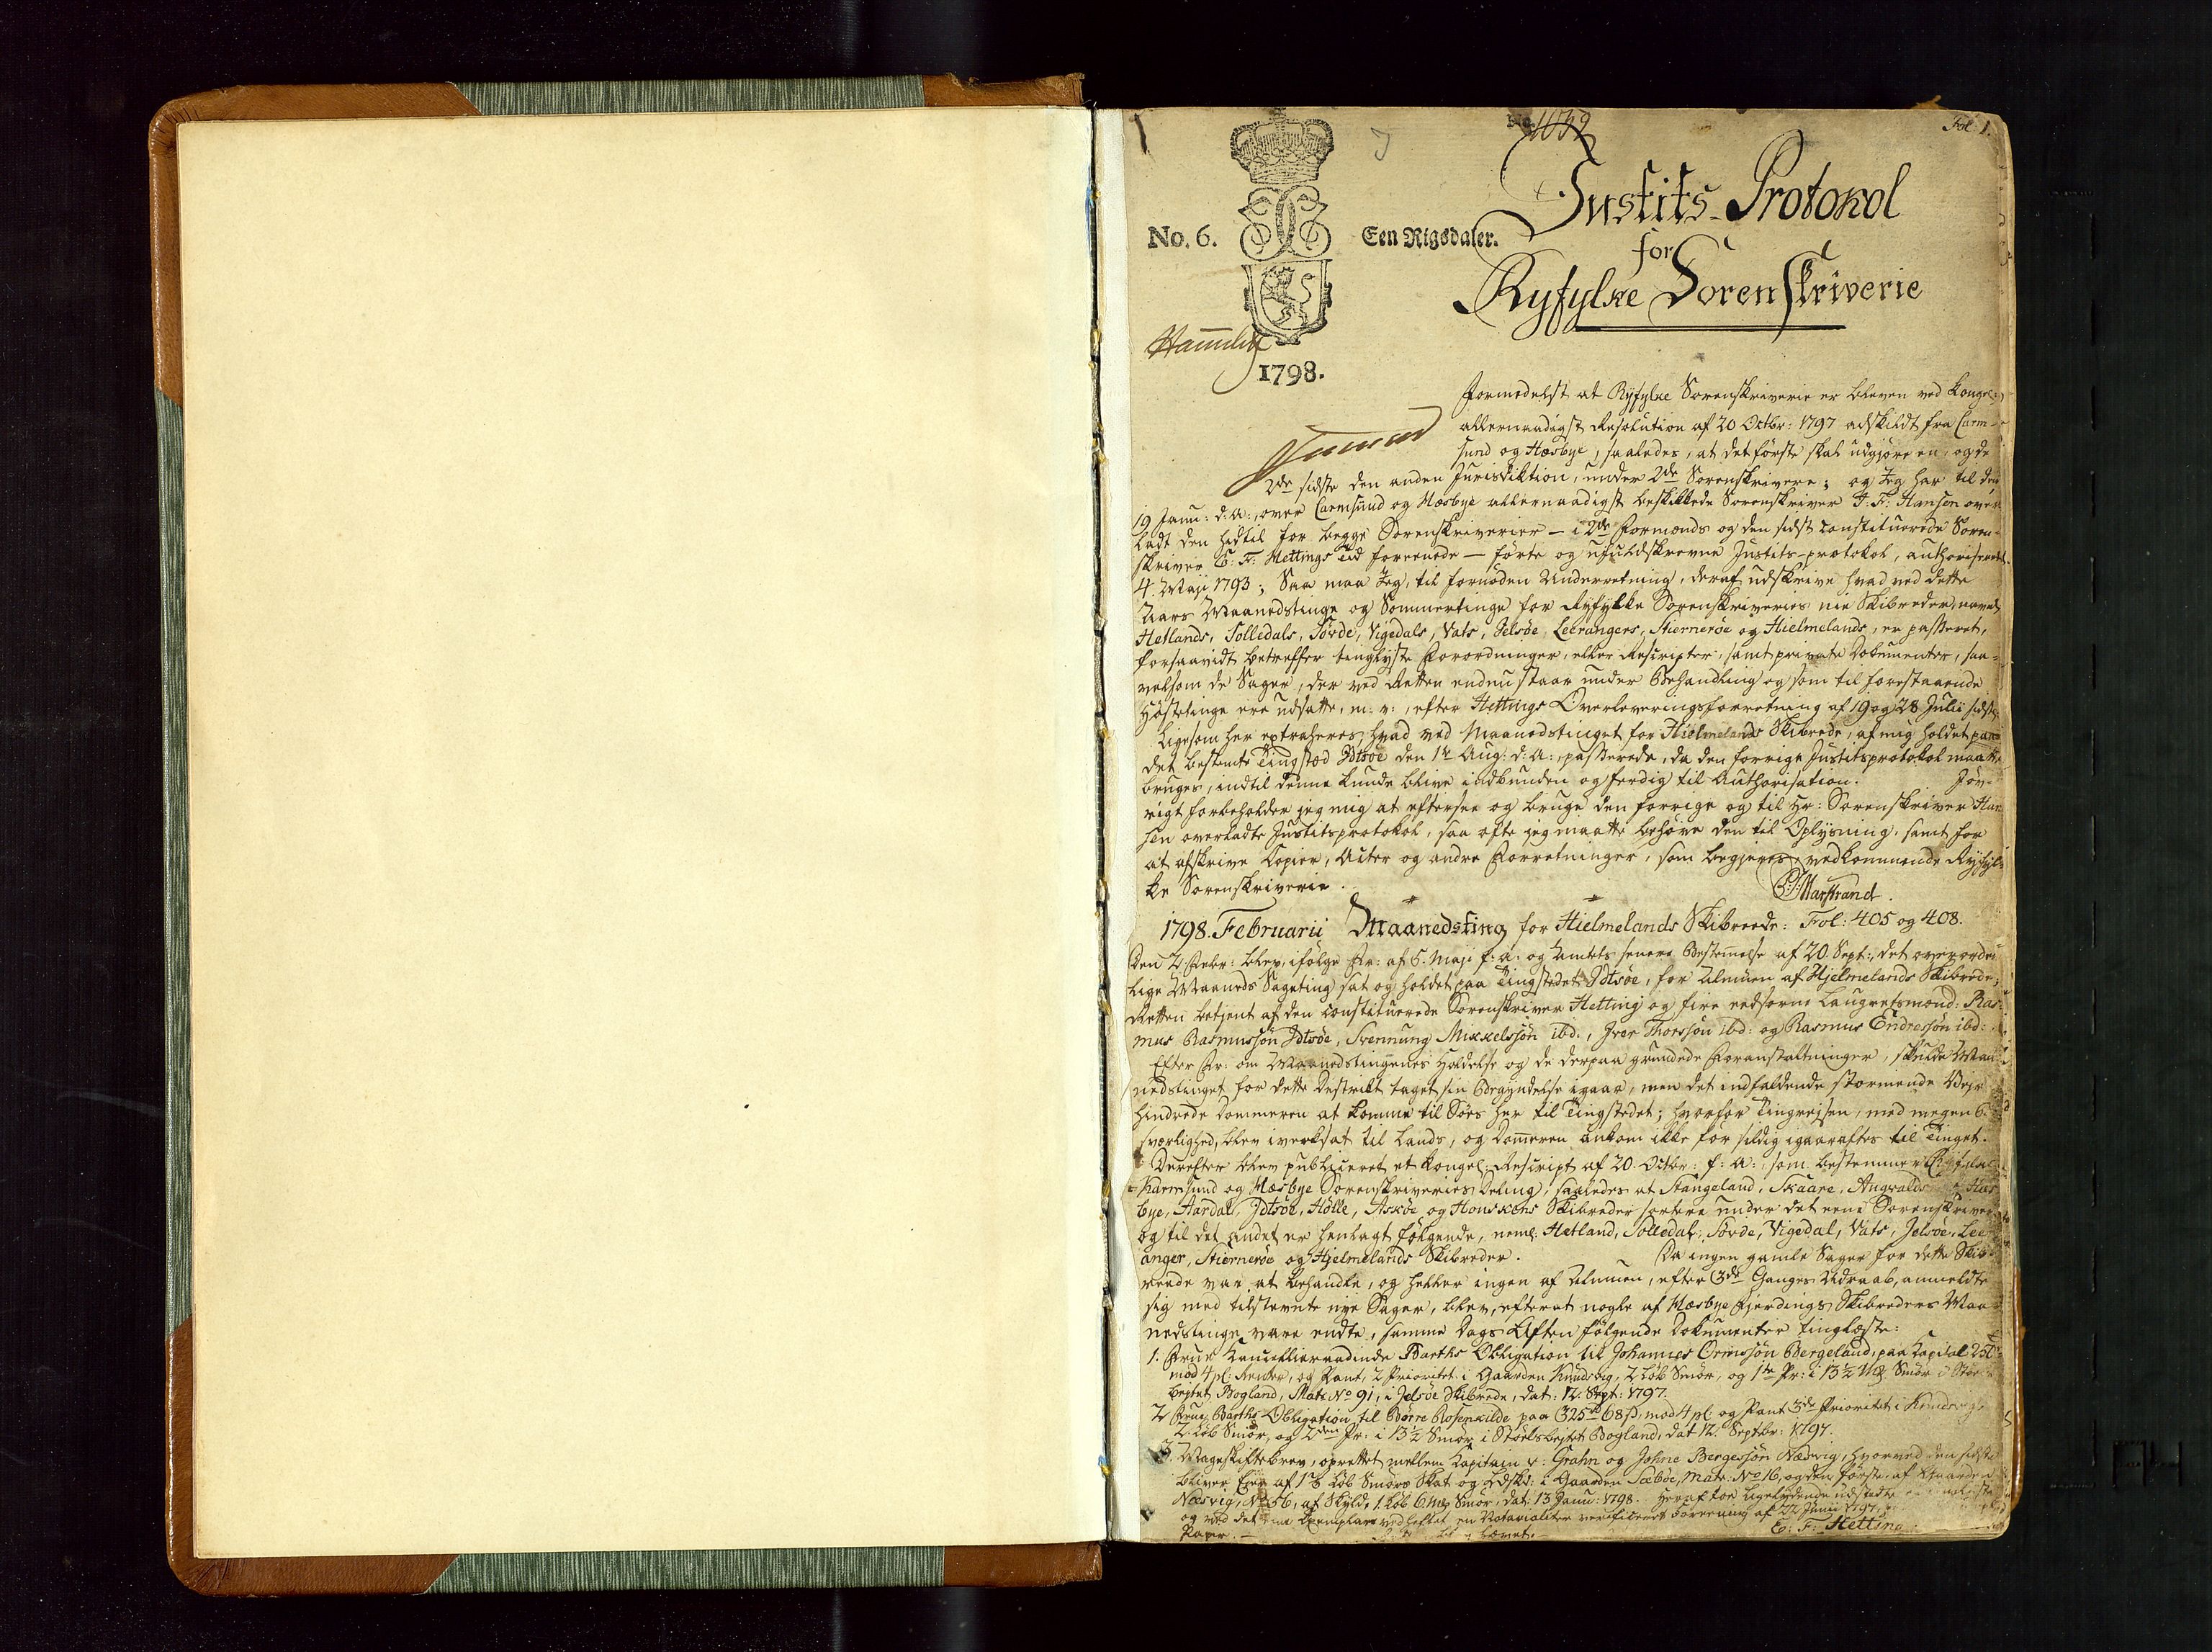 Fol: 1.
No. 1039
Justits-Protokol
No. 6. Een Rigsdaler.
for
Ryfylke Sorenskriverie
1798.
Formedelst at Ryfylke Sorenskriverie er bleven ved Kongel:
allernaadigst Resolution af 20 Octbr: 1797 adskildt fra Carm-
sund og Hæsbye, saaledes, at det første skal udgjøre en, og de
2de sidste den anden Jurisdiktion, under 2de Sorenskrivere; og Jeg har til den
19 Janu: d: a:, over Carmsund og Hæsbye allernaadigst beskikkede Sorenskriver F. F. Hansen over
ladt den hidtil for begge Sorenskriverier - i 2de Formænds og den sidst constituerede Soren-
skriver E: F: Hettings Tid forrenede - førte og ufuldskrevne Justits-protokol, authoriseret
4. Maji 1793; Saa maa Jeg, til fornøden Underretning, deraf udskrive hvad ved dette
Aars Maanedstinge og Sommertinge for Ryfylke Sorenskriveries nie Skibreder, navnl:
Hetlands, Solledals, Søvde, Vigedals, Vats, Jelsøe, Leerangers, Stiernerøe og Hielmelands, er passeret,
forsaavidt betreffer tinglyste Forordninger, eller Rescripter, samt private Dokumenter, saa-
velsom de Sager, der ved Retten endnu staar under Behandling og som til forestaaende
Høstetinge ere udsatte, m: v:, efter Hettings Overleveringsforretning af 19 og 28 Julii sidst.
Ligesom her extraheres, hvad ved Maanedstinget for Hielmelands Skibrede, af mig holdet paa
det bestemte Tingsted Idtsøe den 1te Aug: d: a:, passerede, da den forrige Justitsprotokol maatte
bruges, indtil denne kunde blive indbunden og færdig til Authorisation. Jøv-
rigt forbeholder jeg mig at eftersee og bruge den forrige og til Hr: Sorenskriver Han-
sen overladte Justitsprotokol, saa ofte jeg maatte behøve den til Oplysning, samt for
at afskrive Copier, Acter og andre Forretninger, som begjeres, vedkommende Ryfyl-
ke Sorenskriverie.
Marstrand.
1798. Februarii Maanedsting for Hielmelands Skibreede: Fol: 405 og 408.
Den 2 Febr: blev, ifølge Fr: af 5. Maji f: a: og Amtets senere Bestemelse af 20 Sept:, det overordent-
lige Maaneds Sageting sat og holdet paa Tingstedet Idtsøe, for Almuen af Hjelmelands Skibrede,
Retten betjent af den constituerede Sorenskriver Hetting og fire eedsorne Laugretsmænd: Ras-
mus Rasmussøn Idtsøe, Svennung Mikkelsøn ibd:, Iver Thorssøn ibd: og Rasmus Endressøn ibd:
Efter Fr: om Maanedstingenes Holdelse og de derpaa grundede Foranstaltninger, skulde Maa-
nedstinget for dette Destrikt taget sin Begyndelse igaar, men det indfaldende stormende Vejr
hindrede Dommeren at komme til Søes her til Tingstedet; hvorfor Tingrejsen, med megen be-
sværlighed, blev iverksat til Lands, og Domeren ankom ikke før sildig igaaraftes til Tinget.
Derefter blev publiceret et Kongel: Rescript af 20. Octbr: f: a:, som bestemmer Ryfylke
Karmsund og Hæsbye Sorenskriveries Deling, saaledes at Stangeland, Skaare, Augvalds Hæs-
bye, Aardal, Idtsøe, Hølle, Askøe og Houskens Skibreder sortere under det eene Sorenskriver
og til det andet er henlagt følgende, neml: Hetland, Solledal, Søvde, Vigedal, Vats, Jelsøe, Lee-
anger, Stiernerøe og Hjelmelands Skibreder. Da ingen gamle Sager for dette Skib-
reede var at behandle, og heller ingen af Almuen, efter 3de Ganges Udraab, anmeldte
sig med tilstevnte nye Sager, blev, efterat nogle af Hæsbye Fjerdings Skibreders Maa-
nedstinge vare endte, samme Dags Aften følgende Dokumenter tinglæste:
1. Frue Cancellieraadinde Barths Obligation til Johannes Ormssøn Bergeland, paa Capital 250
mod 4 pC: Renter, og Pant, 2 Prioritet i Gaarden Knudsvig, 2 Løb Smør, og 1te Pr: i 13½ Mk Smør i Støls-
bejtet Bogland, Matr No 91, i Jelsøe Skibrede, dat: 12 Sept: 1797.
2 Frue Barths Obligation til Børre Rosenkilde paa 325 rd 68 s, mod 4 pC og Pant 3de Prioritet i Knudsvig,
2 Løb Smør, og 2den Pr: i 13½ Smør i Stølsbejtet Bogland, dat 12. Septbr: 1797.
3. Mageskiftebrev, oprettet mellem Capitain v: Krahn og Johne Bergessøn Næsvig, hvorved den sidste
bliver Eier af Løb Smørs Skat og Ldskd: i Gaarden Sæbøe, Matr: No 16, og den første, af Gaarden
Næsvig, No 56, af Skyld, 1. Løb 6 Mk Smør, dat: 13 Janu: 1798. Heraf toe ligelydende udstedte
og ved det ene Exemplar vedheftet en Notarialiter verificeret Forening af 22 Junii 1797,
Papir. -
E: F: Hetting